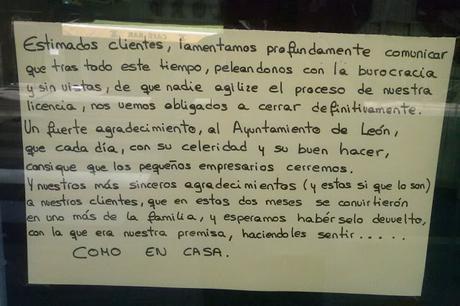 Estimados clientes, lamentamos profundamente comunicar
que tras todo este tiempo, peleandonos con la burocracia
y sin vistas, de que nadie agilize el proceso de nuestra
licencia, nos vemos obligados a cerrar definitivamente.
Un fuerte agradecimiento, al Ayuntamiento de León,
que cada día, con su celeridad y su buen hacer,
consigue que los pequeños empresarios cerremos.
Y nuestros más sinceros agradecimientos (y estos si que lo son)
a nuestros clientes, que en estos dos meses se convirtierón
en uno más de la familia, y esperamos habérselo devuelto,
con la que era nuestra premisa, haciendoles sentir.....
COMO EN CASA.